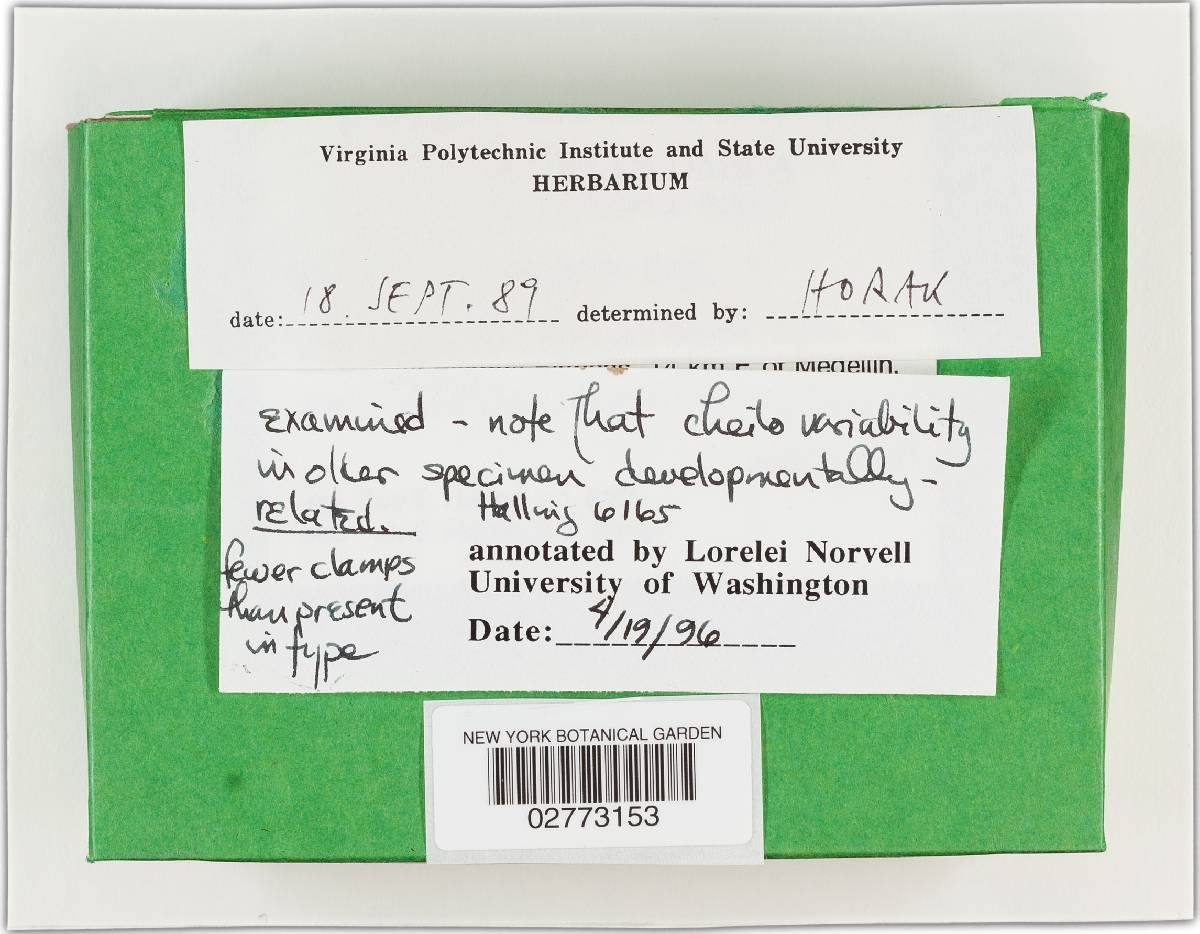 Virginia Polytechnic Institute and State University
HERBARIUM
date: 18. SEPT. 89 determined by: HORAK
14 km E of Medellín.
examined - note that cheilo variability
in other specimen developmentally-
related. Halling 6165
fewer clamps
than present
in type
annotated by Lorelei Norvell
University of Washington
Date: 4/19/96
NEW YORK BOTANICAL GARDEN
02773153